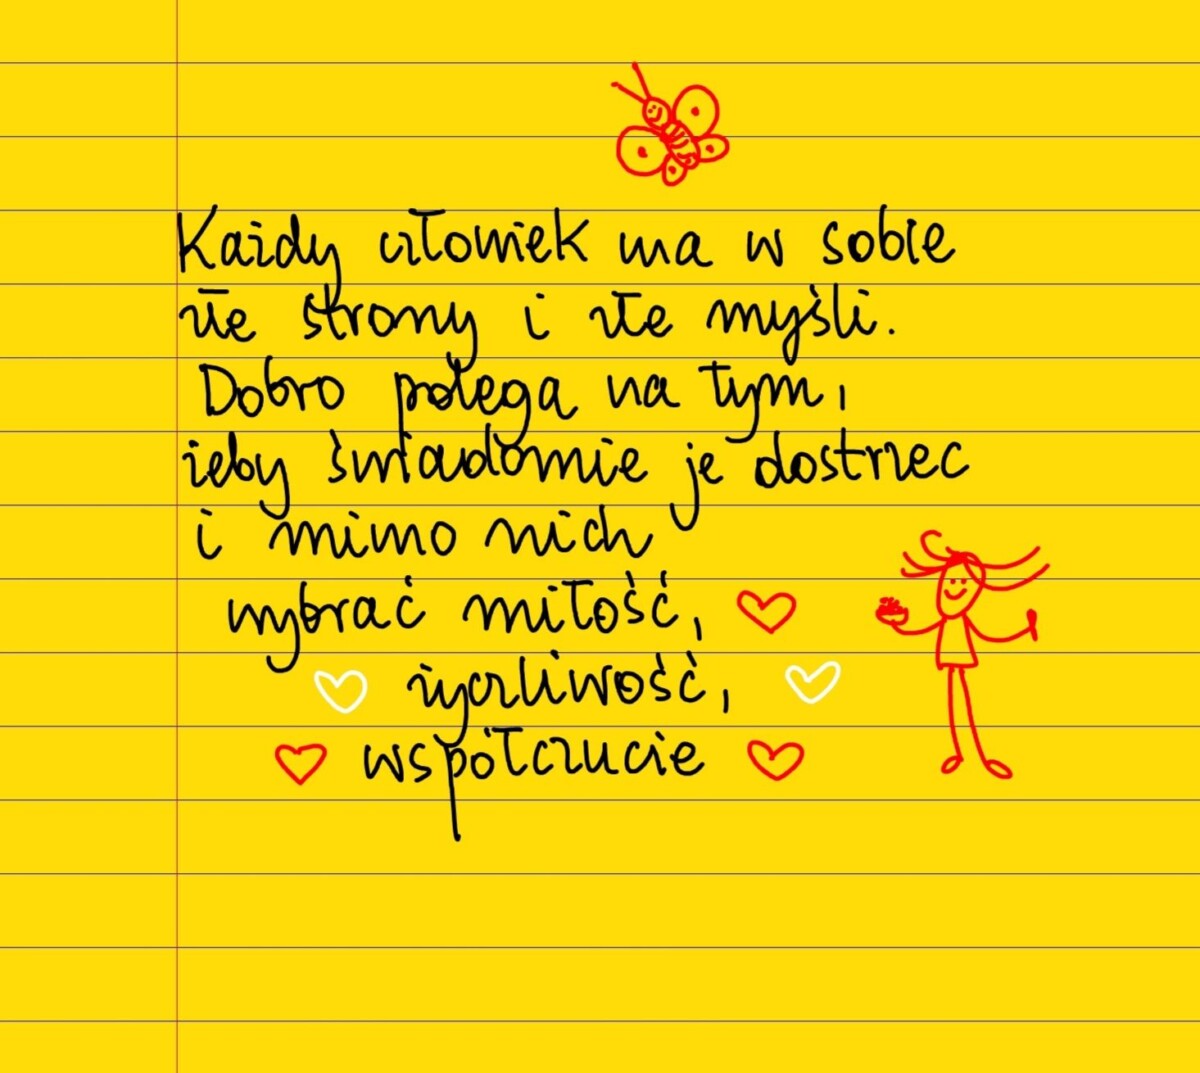 Każdy człowiek ma w sobie
złe strony i złe myśli.
Dobro polega na tym,
żeby świadomie je dostrzec
i mimo nich
wybrać miłość,
życzliwość,
współczucie